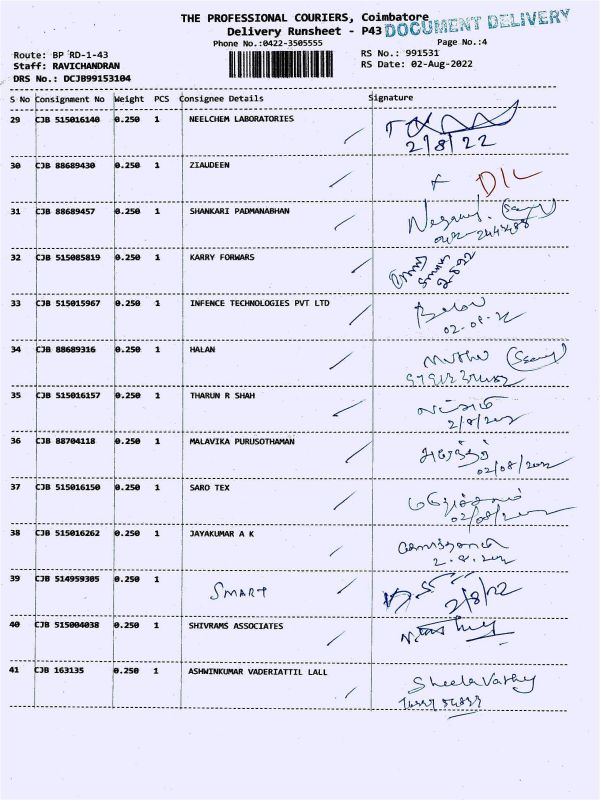 THE PROFESSIONAL COURIERS, Coimbatore
DOCUMENT DELIVERY
Delivery Runsheet - P43
Phone No.:0422-3505555
Page No.:4
Route: BP RD-1-43
RS No.: 991531
Staff: RAVICHANDRAN
RS Date: 02-Aug-2022
DRS No.: DCJB99153104
S No Consignment No Weight PCS Consignee Details Signature
29 CJB 515016140 0.250 1 NEELCHEM LABORATORIES
2/8/22
30 CJB 88689430 0.250 1 ZIAUDEEN
D/L
31 CJB 88689457 0.250 1 SHANKARI PADMANABHAN
32 CJB 515085819 0.250 1 KARRY FORWARS
33 CJB 515015967 0.250 1 INFENCE TECHNOLOGIES PVT LTD
34 CJB 88689316 0.250 1 HALAN
35 CJB 515016157 0.250 1 THARUN R SHAH
36 CJB 88704118 0.250 1 MALAVIKA PURUSOTHAMAN
02/08/2022
37 CJB 515016150 0.250 1 SARO TEX
38 CJB 515016262 0.250 1 JAYAKUMAR A K
39 CJB 514959305 0.250 1 SMART
2/8/22
40 CJB 515004038 0.250 1 SHIVRAMS ASSOCIATES
41 CJB 163135 0.250 1 ASHWINKUMAR VADERIATTIL LALL
Sheela Vathy